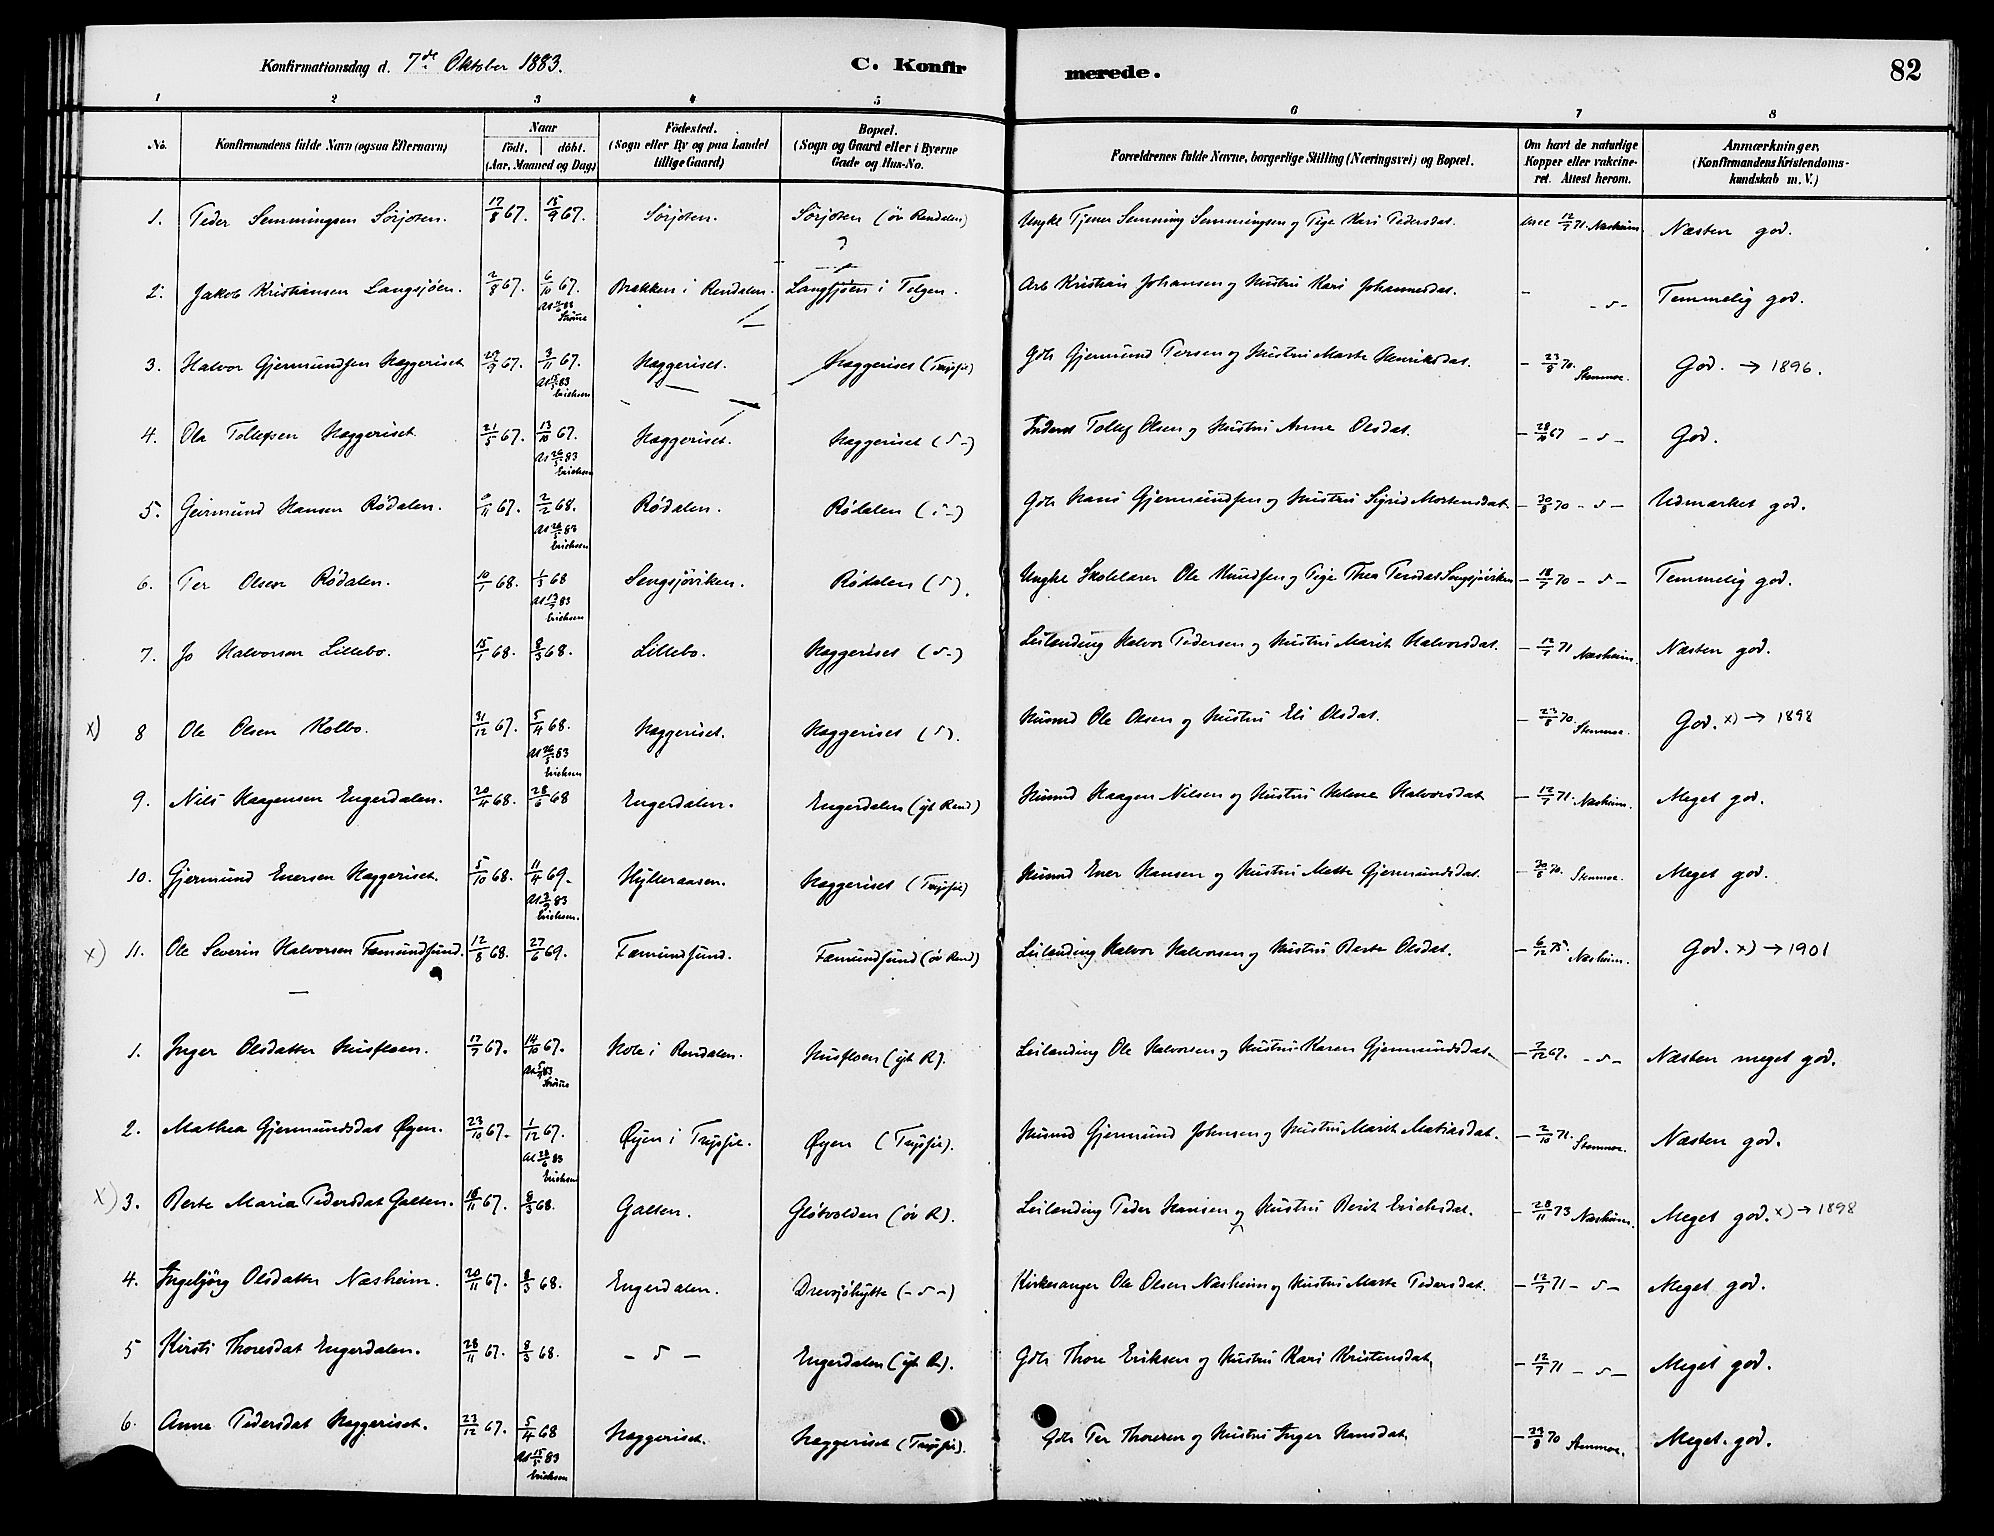 Konfirmationsdag d. 7de Oktober 1883. C. Konfir merede. 82
1 2 3 4 5 6 7 8
No. Konfirmandens fulde Navn (ogsaa Efternavn) Naar födt. döbt. (Aar, Maaned og Dag) Födested. (Sogn eller By og paa Landet tillige Gaard) Bopæl. (Sogn og Gaard eller i Byerne Gade og Hus-No. Forældrenes fulde Navne, borgerlige Stilling (Næringsvei) og Bopæl. Om havt de naturlige Kopper eller vakcineret. Attest herom. Anmærkninger. (Konfirmandens Kristendomskundskab m. V.)
1. Peder Semmingsen Sörjoten. 17/8 67. 15/9 67. Sörjoten. Sörjoten (öv Rendalen) Ungkl Tjener Semming Semmingsen og Pige Kari Pedersdat. vacc 12/7 71. Næsheim. Næsten god.
2. Jakob Kristiansen Langsjöen. 2/8 67. 6/10 67. Brækken i Rendalen. Langsjöen i Tolgen. Arb Kristian Johansen og Hustru Kari Johannesdat. - - 〃 - Temmelig god.
3. Halvor Gjermundsen Hæggeriset 3/11 67. At 15/5 83 Erichsen Hæggeriset. Hæggeriset (Trysil) Gdb Gjermund Persen og Hustru Marte Henriksdat. - 23/8 70. Stenmoe. God. → 1896.
4. Ola Tollefsen Hæggeriset 21/5 67. 13/10 67. At 26/5 83 Erichsen Hæggeriset. Hæggeriset (〃-) Inderst Tollef Olsen og Hustru Anne Olsdat. - 28/11 67 - 〃 - God.
5. Geirmund Hansen Rödalen. 9/11 67. 2/2 68. At 26/5 83 Erichsen Rödalen. Rödalen (〃-) Gdb Hans Gjermundsen og Hustru Sigrid Mortensdat - 30/8 70 - 〃 - Udmærket god.
6. Per Olsen Rödalen. 10/1 68. 1/3 68 At 13/7 83 Erichsen Sengsjöviken. Rödalen (〃). Ungkl Skolelærer Ole Knudsen og Pige Thea Persdat Sengsjöviken - 18/7 70 - 〃 - Temmelig god.
7. Jo Halvorsen Lillebo. 15/1 68. 8/3 68. Lillebo. Hæggeriset (〃-) Leilending Halvor Pedersen og Hustru Marit Halvorsdat. - 12/7 71 Næsheim. Næsten god.
x) 8 Ole Olsen Kolbo. 31/12 67. 5/4 68. At 26/5 83 Erichsen Hæggeriset. Hæggeriset (〃). Husmd Ole Olsen og Hustru Eli Olsdat. - 23/8 70 Stenmoe. God. x) → 1898
9. Nils Haagensen Engerdalen. 20/4 68. 28/6 68 Engerdalen. Engerdalen (yt Rend) Husmd Haagen Nilsen og Hustru Helene Halvorsdat - 12/7 71. Næsheim. Meget god.
10. Gjermund Enersen Hæggeriset. 5/10 68. 11/4 69. At 2/7 83 Erichsen. Hylleraasen. Hæggeriset (Trysil) Husmd Ener Hansen og Hustru Mette Gjermundsdat. - 30/8 70. Stenmoe. Meget god.
x) 11. Ole Severin Halvorsen Fæmundsund. 12/8 68. 27/6 69. Fæmundsund. Fæmundsund (öv Rend) Leilending Halvor Halvorsen og Hustru Berte Olsdat. - 6/12 75. Næsheim. God. x) → 1901
1. Inger Olsdatter Husfloen. 17/7 67. 14/10 67. Hole i Rendalen. Husfloen (yt R). Leilending Ole Halvorsen og Hustru Karen Gjermundsdat. - 7/12 67. - 〃 - Næsten meget god.
2. Mathea Gjermundsdat Øyen. 23/10 67. 1/12 67. At 28/6 83 Erichsen Øyen i Trysil. Øyen (Trysil). Husmd Gjermund Johnsen og Hustru Marit Matiasdat. - 2/10 71. Stenmoe. Næsten god.
x) 3. Berte Maria Pedersdat Galten. 18/11 67. 8/3 68. Galten. Glötvolden (öv R). Leilending Peder Hansen og Hustru Berit Erichsdat. - 28/11 73 Næsheim. Meget god. x) → 1898
4. Ingebjörg Olsdatter Næsheim. 20/11 67. 8/3 68. Engerdalen. Drevsjöhytte (- 〃 -) Kirkesanger Ole Olsen Næsheim og Hustru Marte Pedersdat. - 12/7 71 - 〃 - Meget god.
5 Kirsti Thoresdat Engerdalen. 28/11 67. 8/3 68. - 〃 - Engerdalen (yt R). Gdb Thore Eriksen og Hustru Kari Kristensdat. - 12/7 71 - 〃 - Meget god.
6. Anne Pedersdat Hæggeriset. 23/12 67. 5/4 68 At 15/5 83 Erichsen Hæggeriset. Hæggeriset (Trysil). Gdb Per Thoresen og Hustru Inger Hansdat. - 23/8 70 Stenmoe. Meget god.